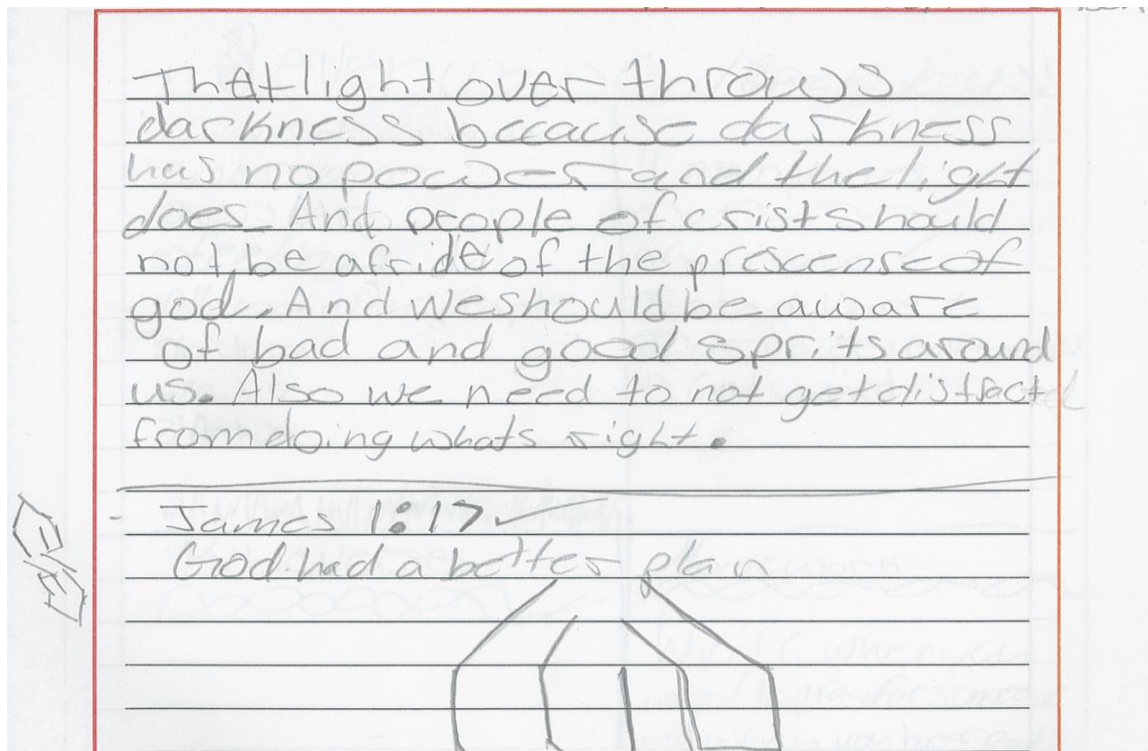 That light over throws
darkness because darkness
has no power and the light
does. And people of crist should
not be afride of the prescense of
god. And we should be aware
of bad and good sprits around
us. Also we need to not get distracted
from doing whats right.
James 1:17
God had a better plan